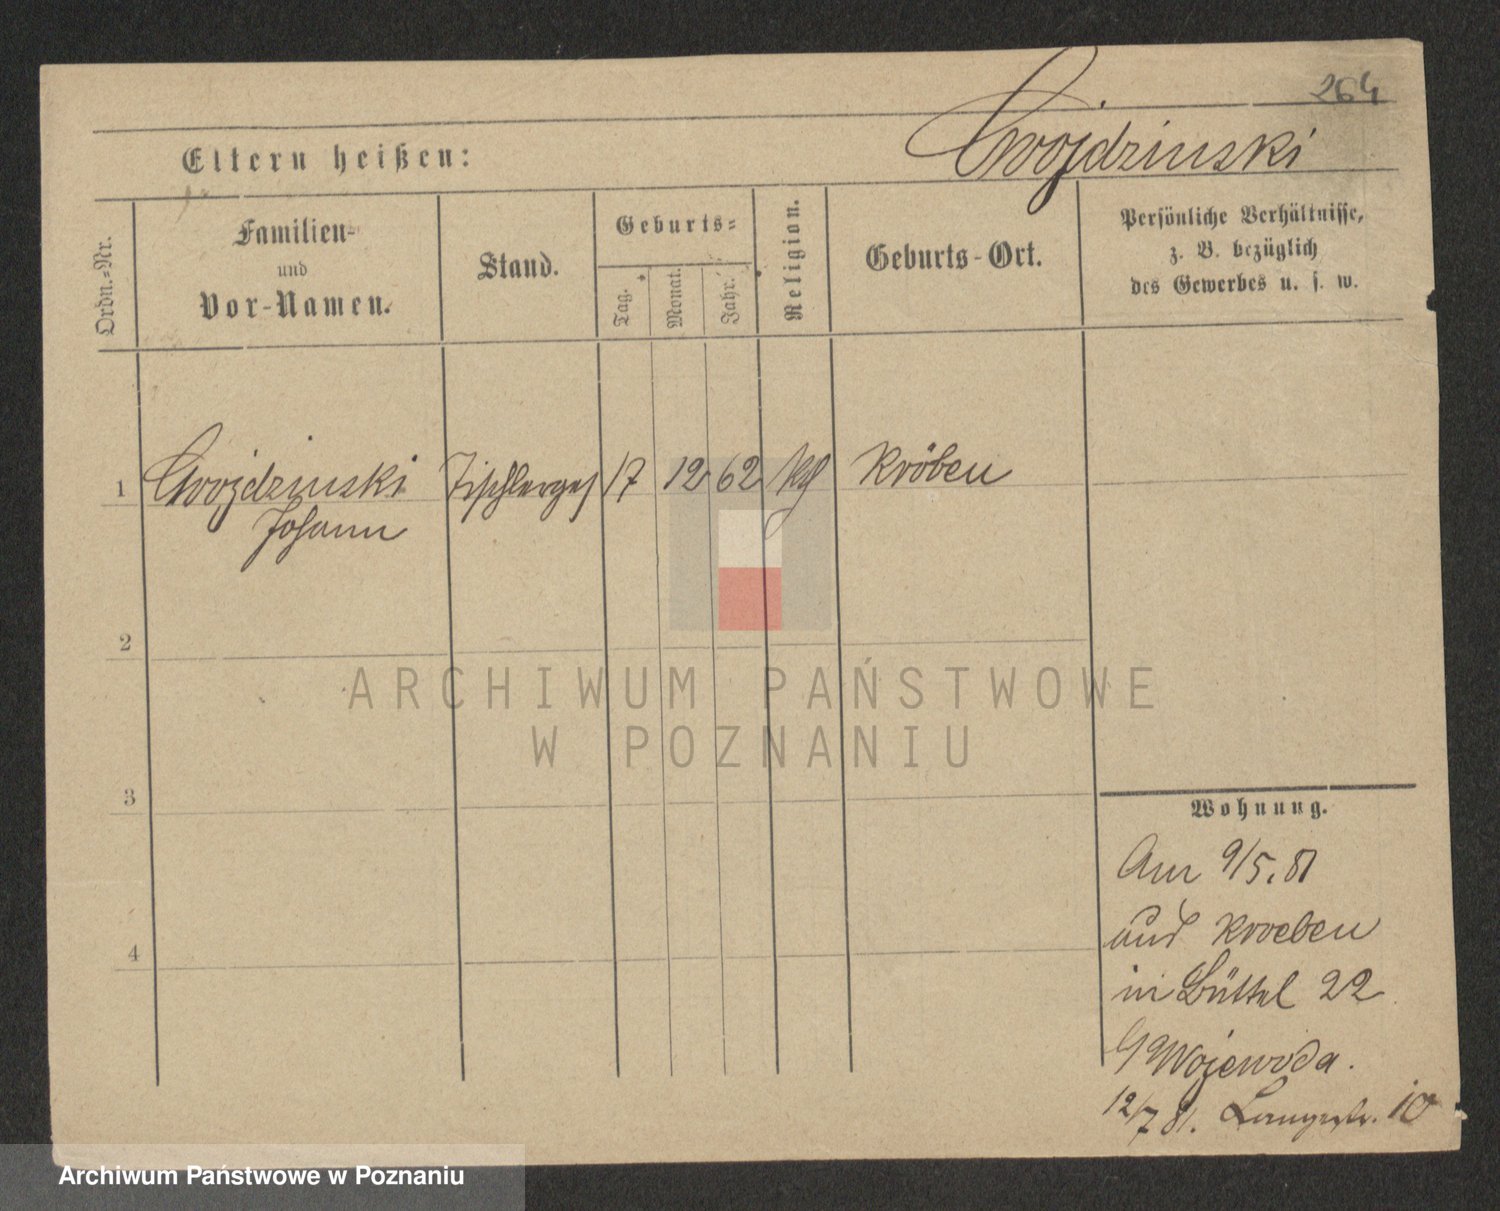 264
Cwojdzinski
Eltern heißen:
Ordn.-Nr.
Familien-
und
Vor-Namen.
Stand.
Geburts-
Tag.
Monat.
Jahr.
Religion.
Geburts-Ort.
Persönliche Verhältnisse,
z. B. bezüglich
des Gewerbes u. s. w.
1 Cwojdzinski Tischlerges 17 12 62 kth Kröben
Johann
2
3
4
Wohnung.
Am 9/5. 81
aus Kroeben
in Büttel 22
b/ Wojewoda.
12/7 81. Langestr. 10
ARCHIWUM PAŃSTWOWE
W POZNANIU
Archiwum Państwowe w Poznaniu